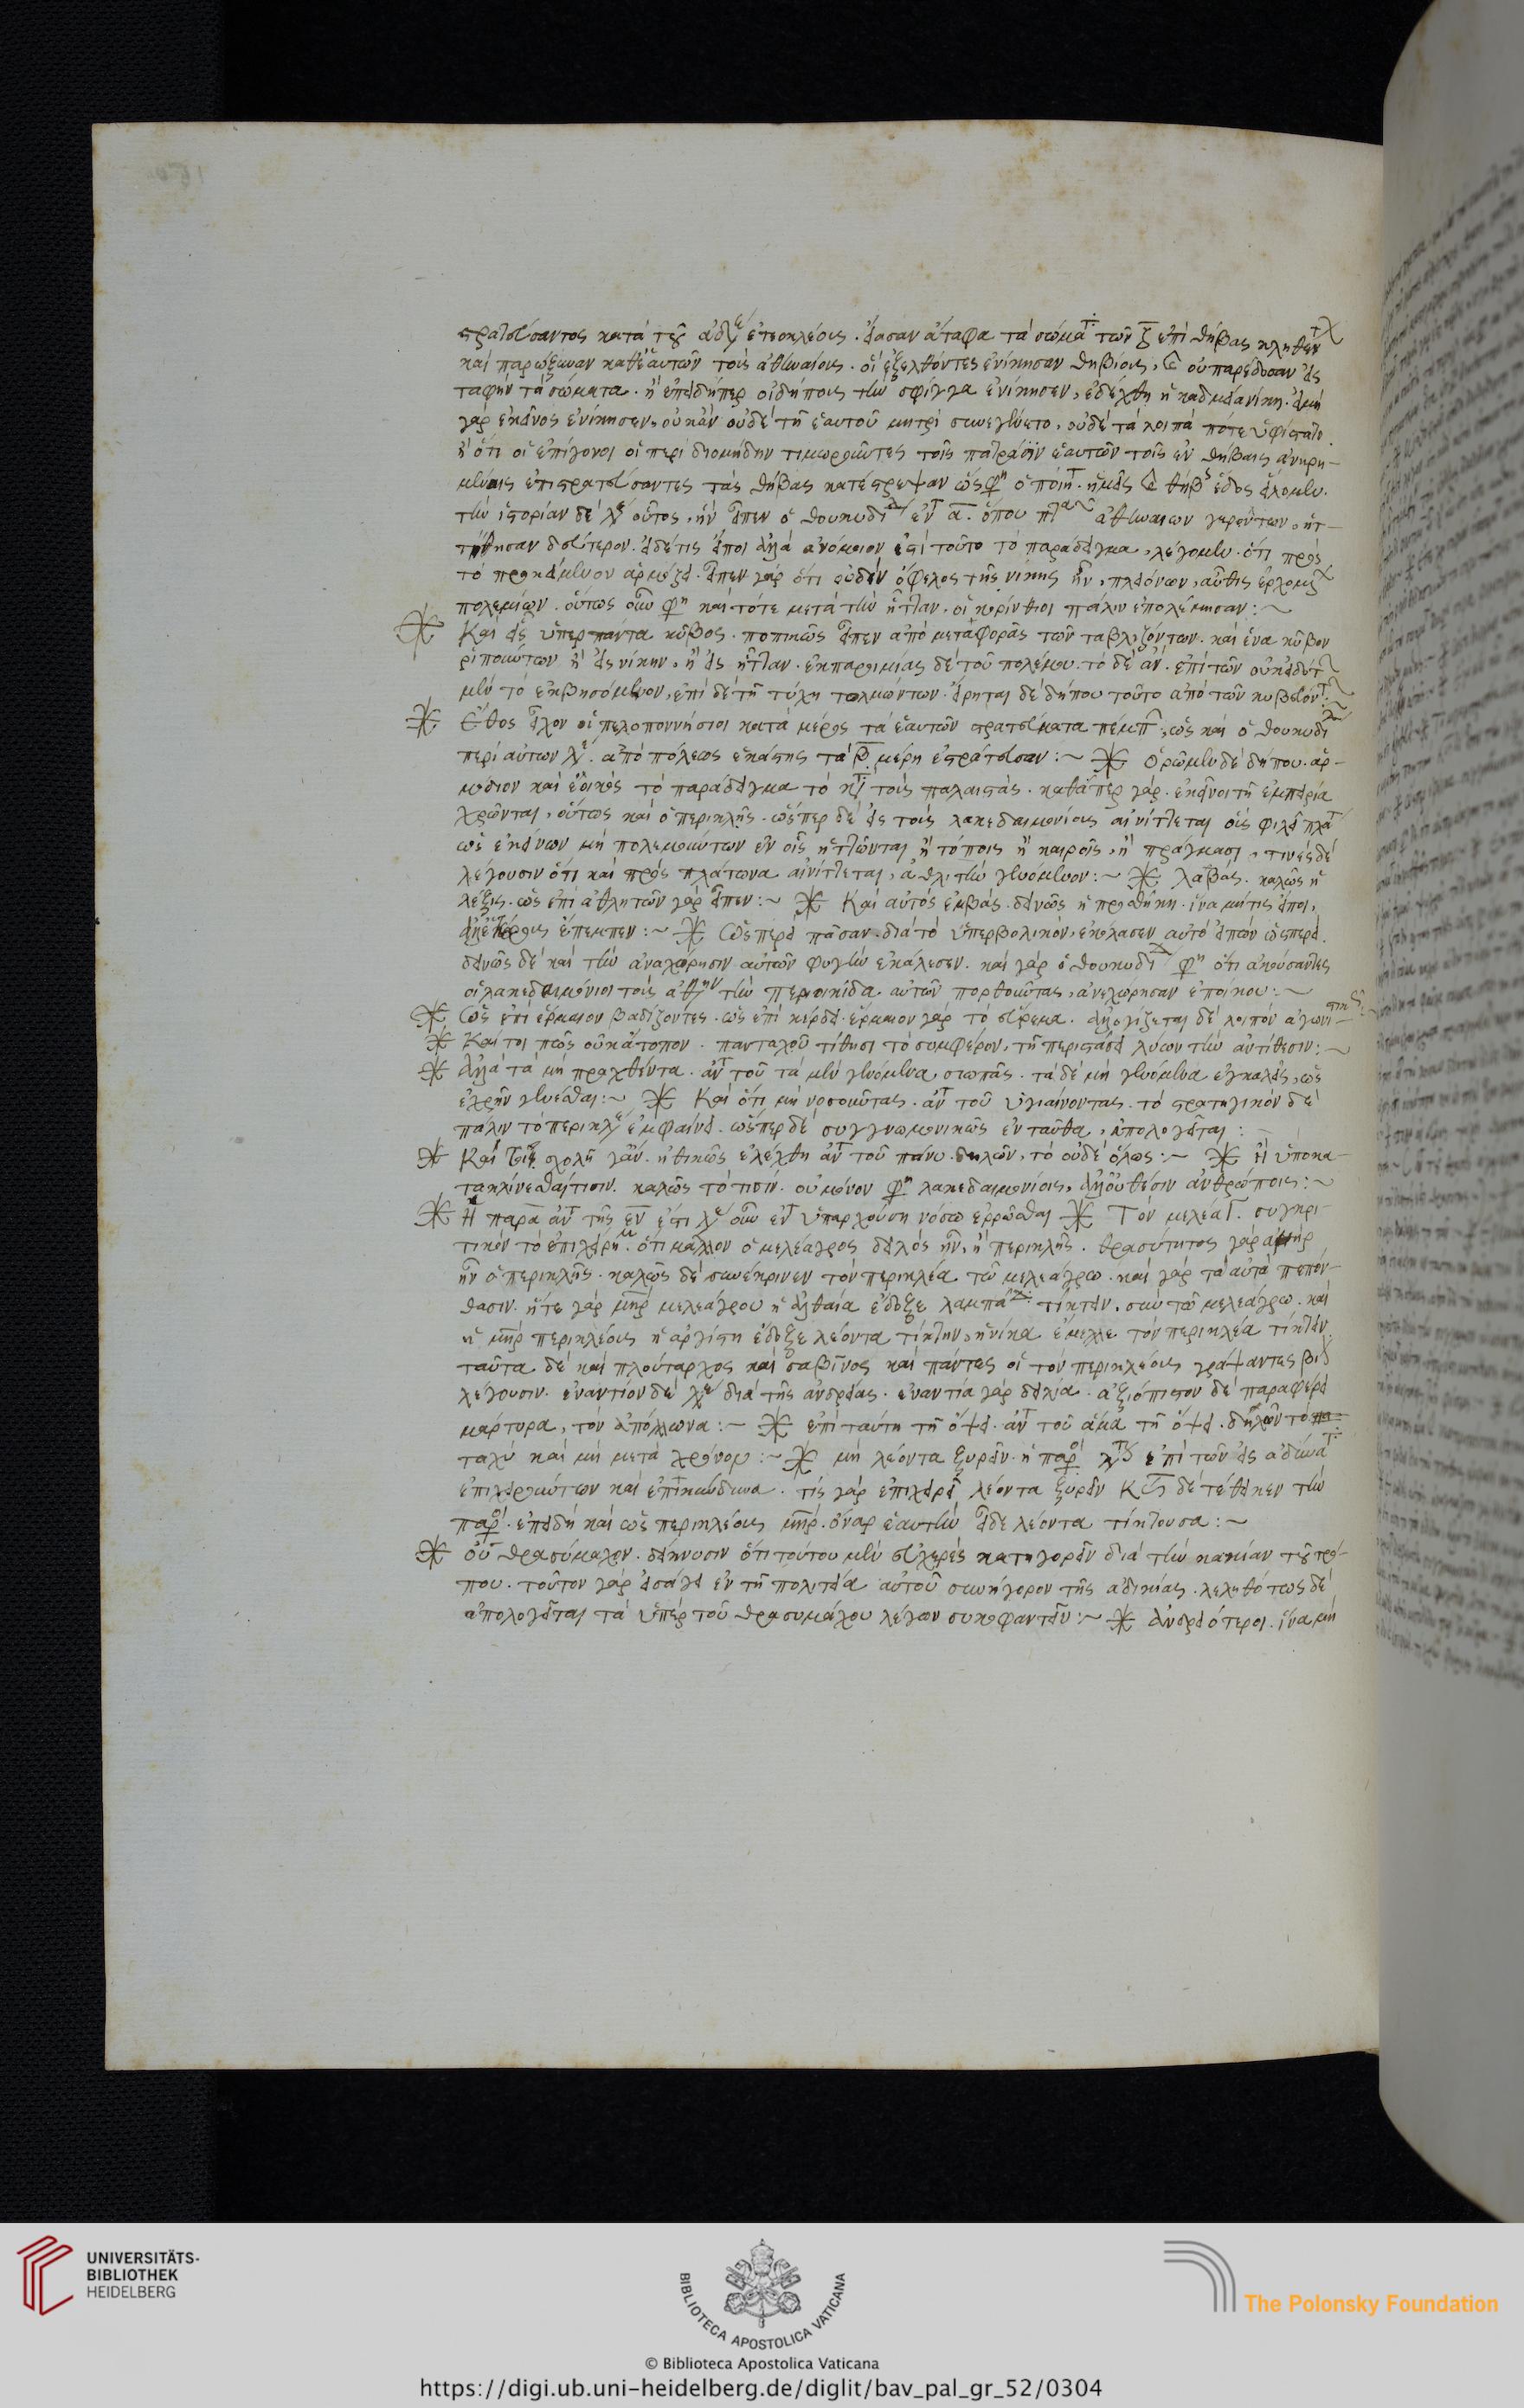 στρατεύσαντος κατὰ τοῦ ἀδελφοῦ ἐτεοκλέους. εἴασαν ἄταφα τὰ σώματ τῶν ζ ἐπὶ θήβας κληθέντ
καὶ παρώξυναν καθ' ἑαυτῶν τοὺς ἀθηναίους. οἱ ἐξελθόντες ἐνίκησαν θηβαίους, καὶ οὐ παρέδωσαν εἰς
ταφὴν τὰ σώματα. ἢ ἐπειδήπερ οἰδήπους τὴν σφίγγα ἐνίκησεν, ἐλέχθη ἡ καδμεία νίκη. εἰ μὴ
γὰρ ἐκεῖνος ἐνίκησεν, οὐκ ἂν οὐδὲ τῇ ἑαυτοῦ μητρὶ συνεγένετο, οὐδὲ τὰ λοιπά ποτε ὑφίστατο
ἢ ὅτι οἱ ἐπίγονοι οἱ περὶ διομήδην τιμωροῦντες τοῖς πατράσιν ἑαυτῶν τοῖς ἐν θήβαις ἀνῃρη-
μένοις ἐπιστρατεύσαντες τὰς θήβας κατέστρεψαν ὥς φη ὁ ποιητ. ἡμεῖς καὶ θήβ ἕδος εἵλομεν.
τὴν ἱστορίαν δὲ λέ οὗτος, ἣν εἶπεν ὁ θουκυδί ἐν τ α. ὅπου ἀθηναίων γερόντων, ἡτ-
τήθησαν δεύτερον. εἰ δέ τις εἴποι ἀλλὰ ἀνόμοιον ἐστὶ τοῦτο τὸ παράδειγμα, λέγομεν. ὅτι πρὸς
τὸ προκείμενον ἁρμόζει. εἶπεν γὰρ ὅτι οὐδὲν ὄφελος τῆς νίκης ἦν, πλειόνων, αὖθις ἐρχομ
πολεμίων. οὕτως οὖν φη καὶ τότε μετὰ τὴν ἧτταν, οἱ κορίνθιοι πάλιν ἐπολέμησαν:~
Καὶ εἷς ὑπὲρ πάντα κύβος. ποιητικῶς εἶπεν ἀπὸ μεταφορᾶς τῶν ταβλιζόντων. καὶ ἕνα κύβον
ῥιπτούντων ἢ εἰς νίκην, ἢ εἰς ἧτταν. ἐκ παροιμίας δὲ τοῦ πολέμου. τὸ δὲ ἂν. ἐπὶ τῶν οὐκ εἰδότ
μὲν τὸ ἐκβησόμενον, ἐπὶ δὲ τῇ τύχῃ τολμώντων. εἴρηται δὲ δήπου τοῦτο ἀπὸ τῶν κυβευόντ:~
Ἔθος εἶχον οἱ πελοποννήσιοι κατὰ μέρος τὰ ἑαυτῶν στρατεύματα πέμπ, ὡς καὶ ὁ θουκυδί
περὶ αὐτῶν λέ. ἀπὸ πόλεως ἑκάστης τὰ β μέρη ἐστράτευσαν:~ Ὁρῶμεν δὲ δήπου. ἁρ-
μόδιον καὶ ἐοικὸς τὸ παράδειγμα τὸ κτ τοὺς παλαιστάς. καθάπερ γὰρ. ἐκεῖνοι τῇ ἐμπειρίᾳ
χρῶνται, οὕτως καὶ ὁ περικλῆς. ὥσπερ δὲ εἰς τοὺς λακεδαιμονίους αἰνίττεται οὓς φιλεῖ πλάτ
ὡς ἐκείνων μὴ πολεμούντων ἐν οἷς ἡττῶνται ἢ τόποις ἢ καιροῖς, ἢ πράγμασι, τινὲς δὲ
λέγουσιν ὅτι καὶ πρὸς πλάτωνα αἰνίττεται, ἀθλητὴν γενόμενον:~ λαβάς. καλῶς ἡ
λέξις. ὡς ἐπὶ ἀθλητῶν γὰρ εἶπεν:~ Καὶ αὐτὸς ἐμβάς. δεινῶς ἡ προσθήκη. ἵνα μή τις εἴποι,
ἀλλ' ἑτέρους ἔπεμπεν:~ Ὡσπερεὶ πᾶσαν. διὰ τὸ ὑπερβολικόν, ἐκόλασεν αὐτὸ εἰπὼν ὡσπερεί.
δεινῶς δὲ καὶ τὴν ἀναχώρησιν αὐτῶν φυγὴν ἐκάλεσεν. καὶ γὰρ ὁ θουκυδί φη ὅτι ἀκούσαντες
οἱ λακεδαιμόνιοι τοὺς ἀθην τὴν περιοικίδα αὐτῶν πορθοῦντας, ἀνεχώρησαν ἐπ' οἴκου:~
Ὡς ἐπὶ ἕρμαιον βαδίζοντες. ὡς ἐπὶ κέρδει. ἕρμαιον γὰρ τὸ εὕρεμα. ἀπολογίζεται δὲ λοιπὸν ἀγωνιστικῶς:~
Καί τοι πῶς οὐκ ἄτοπον. πανταχοῦ τίθησι τὸ συμφέρον, τῇ περιστάσει λύων τὴν ἀντίθεσιν:~
Ἀλλὰ τὰ μὴ πραχθέντα. ἀντ τοῦ τὰ μὲν γενόμενα, σιωπᾷς. τὰ δὲ μὴ γενόμενα ἐγκαλεῖς, ὡς
ἐχρῆν γενέσθαι:~ Καὶ ὅτι μὴ νοσοῦντας. ἀντ τοῦ ὑγιαίνοντας. τὸ στρατηγικὸν δὲ
πάλιν τὸ περικλέ ἐμφαίνει. ὥσπερ δὲ συγγνωμονικῶς ἐνταῦθα, ἀπολογεῖται:
Καὶ σχολῇ γ' ἄν. ἠθικῶς ἐλέχθη ἀντ τοῦ πάνυ δηλῶν, τὸ οὐδὲ ὅλως:~ Ἢ ὑποκα-
τακλίνεσθαί τισιν. καλῶς τὸ τισίν. οὐ μόνον φη λακεδαιμονίοις, ἀλλ' οὐδέσιν ἀνθρώποις:~
Ἡ παρὰ ἀντ τῆς ἐν ἐστι λέ οὖν ἐν τ ὑπαρχούσῃ νόσῳ ἐρρῶσθαι Τὸν μελέαγ. συγκρι-
τικὸν τὸ ἐπιχείρημ. ὅτι μᾶλλον ὁ μελέαγρος δειλὸς ἦν, ἢ περικλῆς. θρασύτητος γὰρ ἀνὴρ
ἦν ὁ περικλῆς. καλῶς δὲ συνέκρινεν τὸν περικλέα τῷ μελεάγρῳ. καὶ γὰρ τὰ αὐτὰ πεπόν-
θασιν. ἥτε γὰρ μηρ μελεάγρου ἡ ἀλθαία ἔδοξε λαμπάδ τίκτειν, σὺν τῷ μελεάγρῳ. καὶ
ἡ μηρ περικλέους ἡ ἀργίστη ἔδοξε λέοντα τίκτειν, ἡνίκα ἔμελλε τὸν περικλέα τίκτειν
ταῦτα δὲ καὶ πλούταρχος καὶ σαβῖνος καὶ πάντες οἱ τὸν περικλέους γράψαντες βίον
λέγουσιν. ἐναντίον δὲ λέ διὰ τῆς ἀνδρείας. ἐναντία γὰρ δειλία. ἀξιόπιστον δὲ παραφέρει
μάρτυρα, τὸν ἀπόλλωνα:~ ἐπὶ ταύτῃ τῇ ὄψει. ἀντ τοῦ ἅμα τῇ ὄψει. δηλῶν τὸ
ταχὺ καὶ μὴ μετὰ χρόνου:~ μὴ λέοντα ξυρεῖν. ἡ παρ ἐπὶ τῶν εἰς ἀδύνατ
ἐπιχειρούντων καὶ ἐπικίνδυνα. τίς γὰρ ἐπιχειρεῖ λέοντα ξυρεῖν δὲ τέθεικεν τὴν
παρ. ἐπειδὴ καὶ ὡς περικλέους μηρ. ὄναρ ἑαυτὴν εἶδε λέοντα τίκτουσα:~
οὐ θρασύμαχον. δείκνυσιν ὅτι τούτου μὲν εὐχερὲς κατηγορεῖν διὰ τὴν κακίαν τοῦ τρό-
που. τοῦτον γὰρ εἰσάγει ἐν τῇ πολιτείᾳ αὐτοῦ συνήγορον τῆς ἀδικίας. λεληθότως δὲ
ἀπολογεῖται τὰ ὑπὲρ τοῦ θρασυμάχου λέγων συκοφαντεῖν:~ Ἀνδρειότεροι. ἵνα μὴ
UNIVERSITÄTS-
BIBLIOTHEK
HEIDELBERG
BIBLIOTECA APOSTOLICA VATICANA
The Polonsky Foundation
© Biblioteca Apostolica Vaticana
https://digi.ub.uni-heidelberg.de/diglit/bav_pal_gr_52/0304